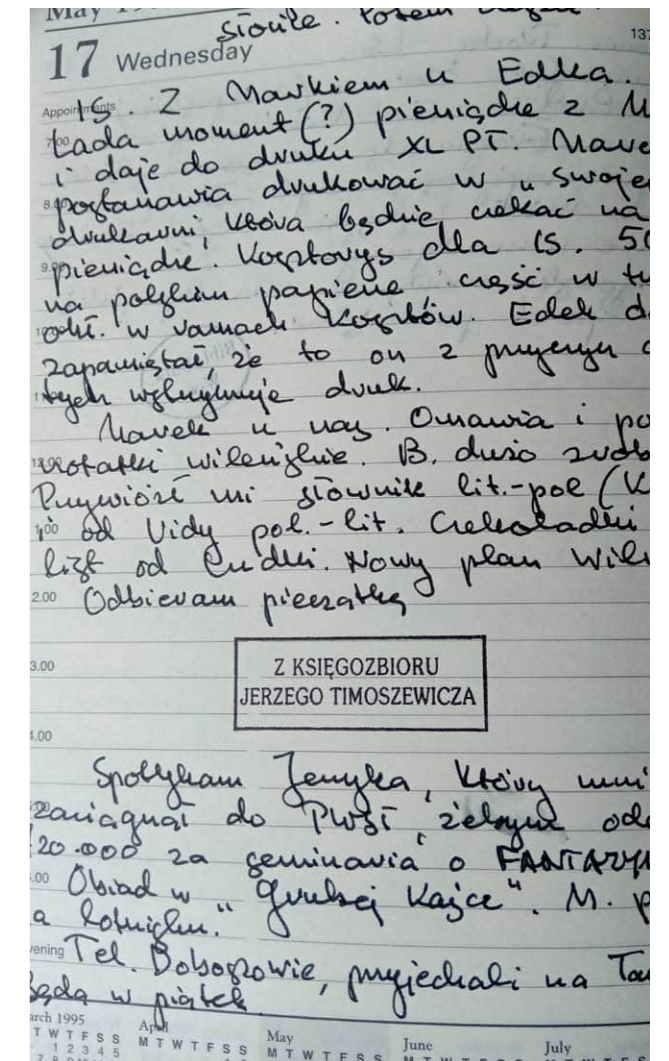 May
słonile. Potem
137
17 Wednesday
Appointments
15. Z Markiem u Edka.
7.00
Lada moment (?) pieniądze z M
i daje do druku XL PT. Mare
8.00
postanawia drukować w "swoje
drukarni, która będzie czekać na
9.00
pieniądze. Kosztorys dla 15. 50
na polskim papierze część w tw
10.00
okł. w ramach kosztów. Edek d
zapamiętał, że to on z przyczyn
tych wstrzymuje druk.
Marek u nas. Omawia i po
12.00
notatki wileńskie. B. dużo zrob
Przywiózł mi słownik lit.-pol (K
1.00
i od Vidy pol.-lit. Czekoladki
list od Ludki. Nowy plan Wil
2.00
Odbieram pieczątkę
3.00
Z KSIĘGOZBIORU
JERZEGO TIMOSZEWICZA
4.00
Spotykam Jerzyka, który mni
zaciągnął do PWST, żebym ode
120.000 za seminaria o FANTAZYM
Obiad w "Grubej Kaśce". M. p
a lotnisku."
evening
Tel. Bobosowie, przyjechali na Ta
Będą w piątek
March 1995
T W T F S S
1 2 3 4 5
April
M T W T F S S
May
M T W T F S S
June
M T W T F S S
July
M T W T F S S